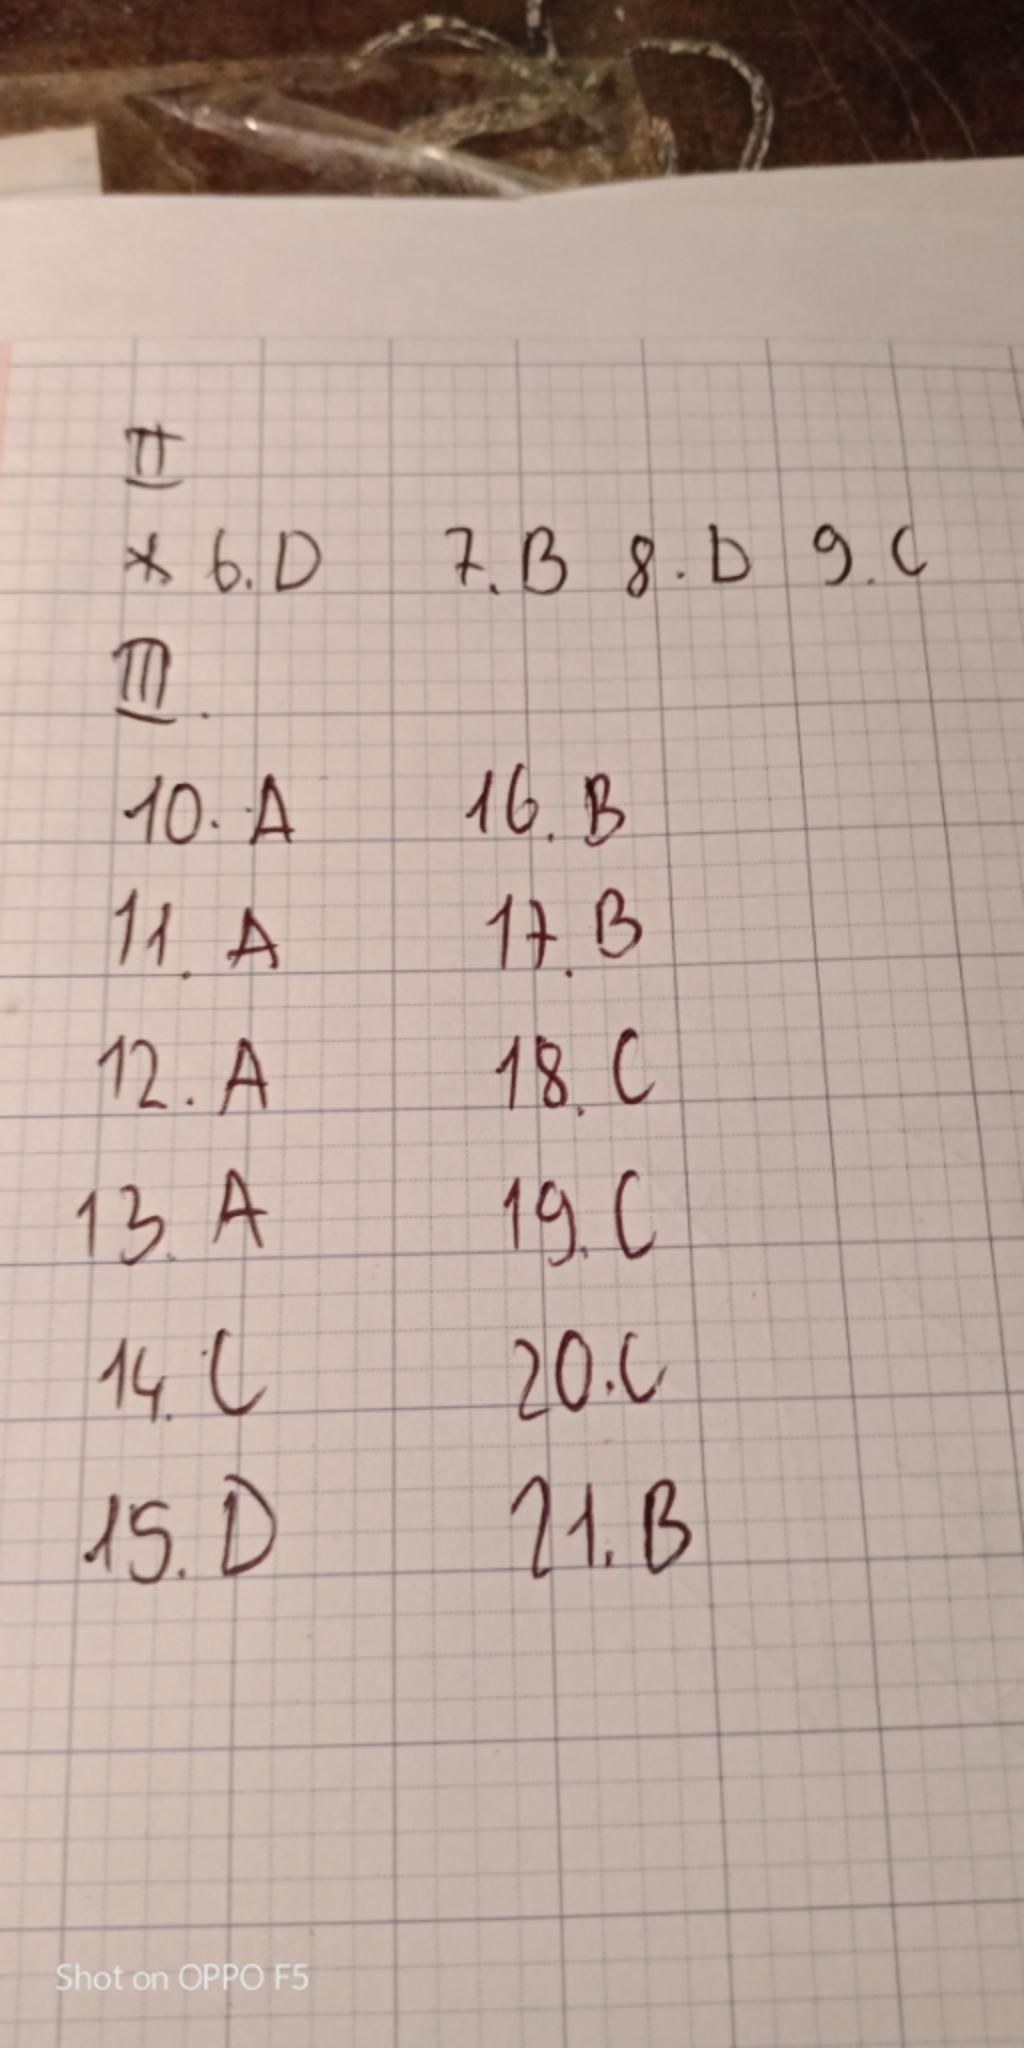 II
* 6. D 7. B 8. D 9. C
III.
10. A 16. B
11. A 17. B
12. A 18. C
13. A 19. C
14. C 20. C
15. D 21. B
Shot on OPPO F5